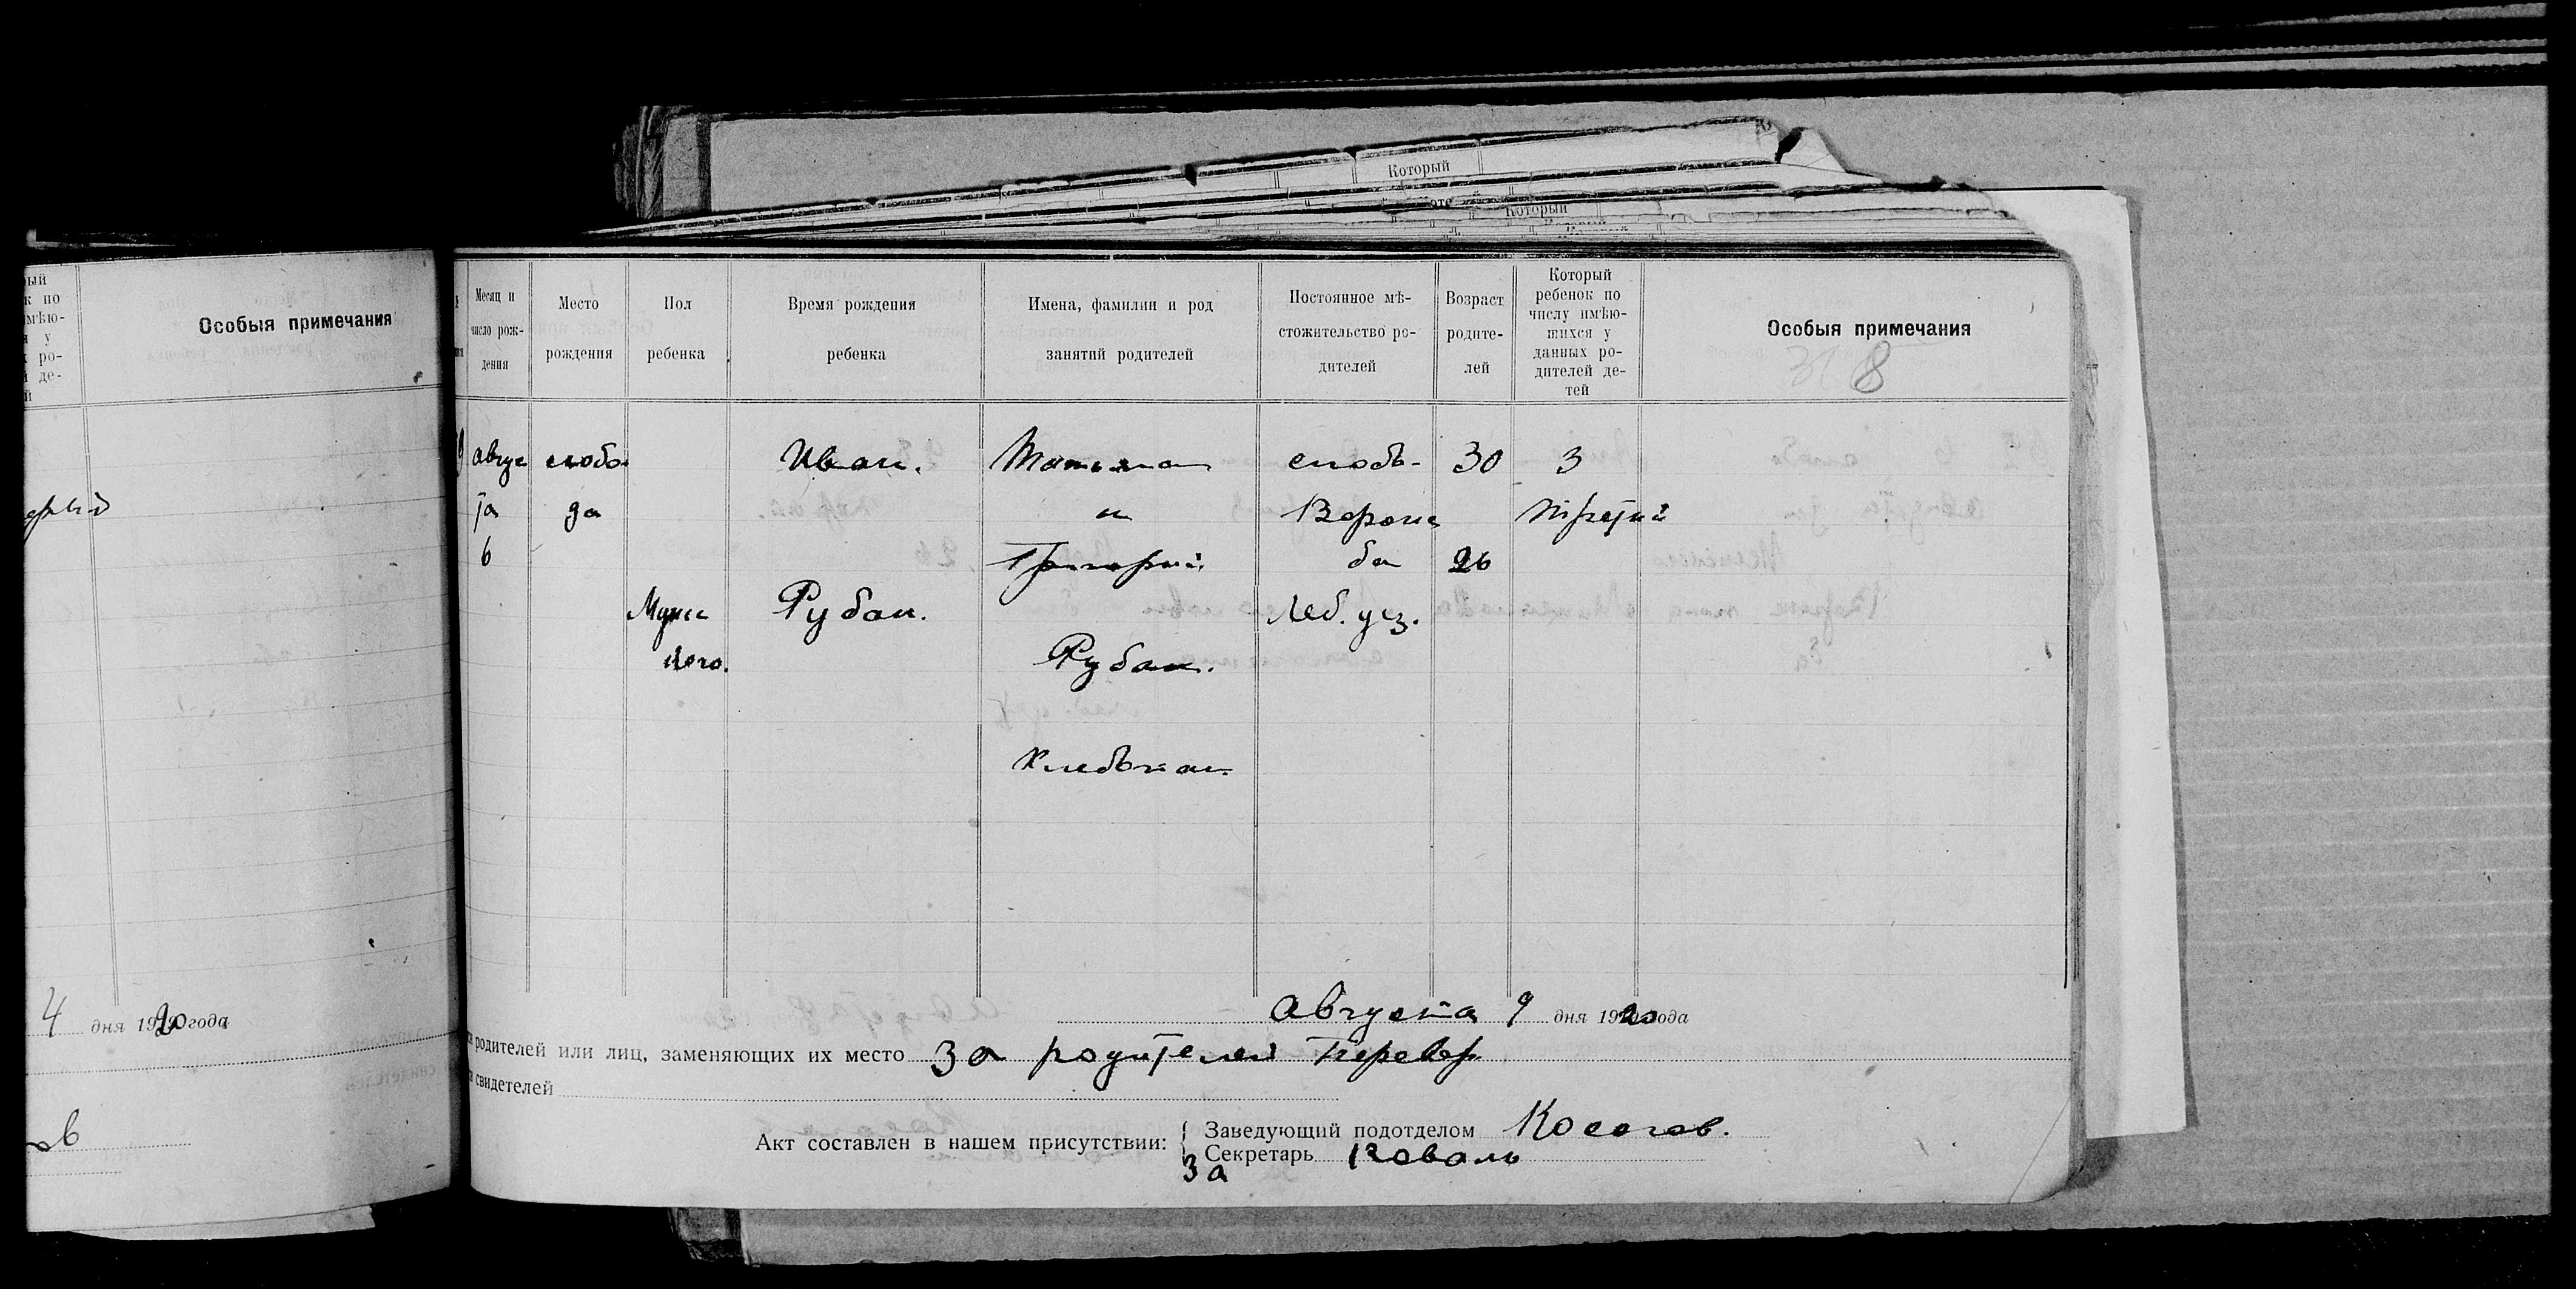 Который
Который
ый
к по
имѣю-
я у
х ро-
й де-
й
Особыя примечания
4 дня 1920 года
ов
Месяц и число рождения
Место рождения
Пол ребенка
Время рождения ребенка
Имена, фамилии и род занятий родителей
Постоянное мѣстожительство родителей
Возраст родителей
Который ребенок по числу имѣющихся у данных родителей детей
Особыя примечания
318
авгус
та
6
слобо
да
Мужс
кого.
Иван.
Рубан.
Татьяна
и
Григорий
Рубан.
Хлебопаш.
слобь-
Ворож
ба
Леб. уез.
30
26
3
третий
Августа 9 дня 1920 года
родителей или лиц, заменяющих их место За родителей Перевер
свидетелей
Акт составлен в нашем присутствии:
Заведующий подотделом Косогов.
Секретарь Коваль
За